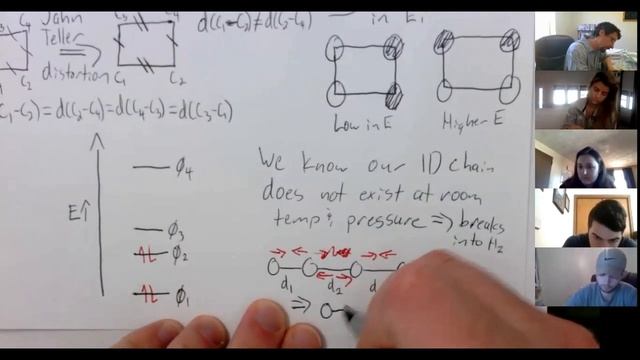 C₃ C₄
Jahn
Teller
⇒
distortion
C₂
C₁ C₂
d(C₁-C₃)≠d(C₃-C₄)
in E₁
C₁-C₃)=d(C₃-C₄)=d(C₄-C₃)=d(C₃-C₁)
Low in E
Higher E
We know our 1D chain
does not exist at room
temp & pressure ⇒ breaks
into H₂
E↑
ϕ₄
ϕ₃
ϕ₂
ϕ₁
d₁ d₂ d
⇒